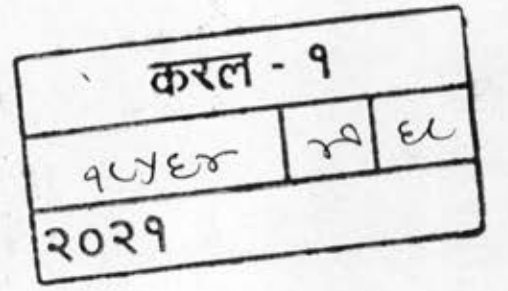 करल - १
१८५६४ ४१ ६८
२०२१